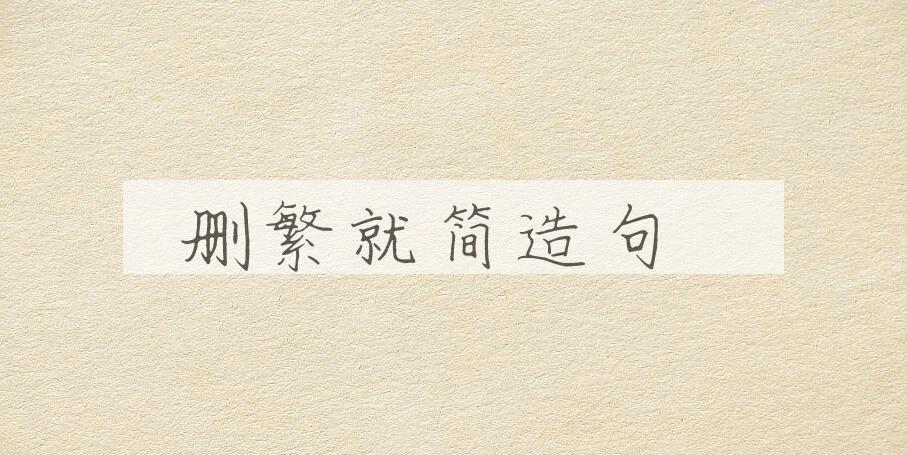 删繁就简造句